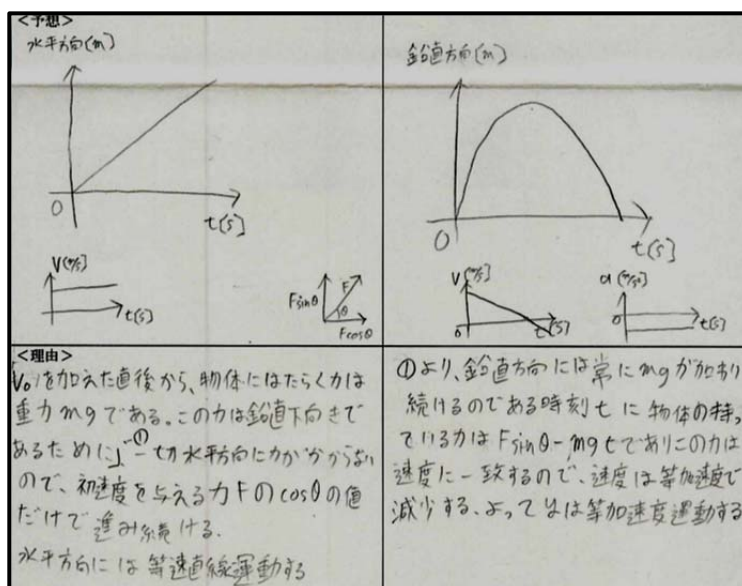 <予想>
水平方向(m)
O
t[s]
V[m/s]
t[s]
F
Fsinθ
θ
Fcosθ
鉛直方向(m)
O
t[s]
V[m/s]
0
t[s]
a[m/s²]
0
<理由>
V₀を加えた直後から、物体にはたらく力は
重力mgである。この力は鉛直下向きで
あるために、①一切水平方向に力がかからない
ので、初速度を与える力Fのcosθの値
だけで進み続ける。
水平方向には等速直線運動する
①より、鉛直方向には常にmgが加わり
続けるのである時刻tに物体の持っ
ている力はFsinθ-mgtでありこの力は
速度に一致するので、速度は等加速度で
減少する。よって yは等加速度運動する